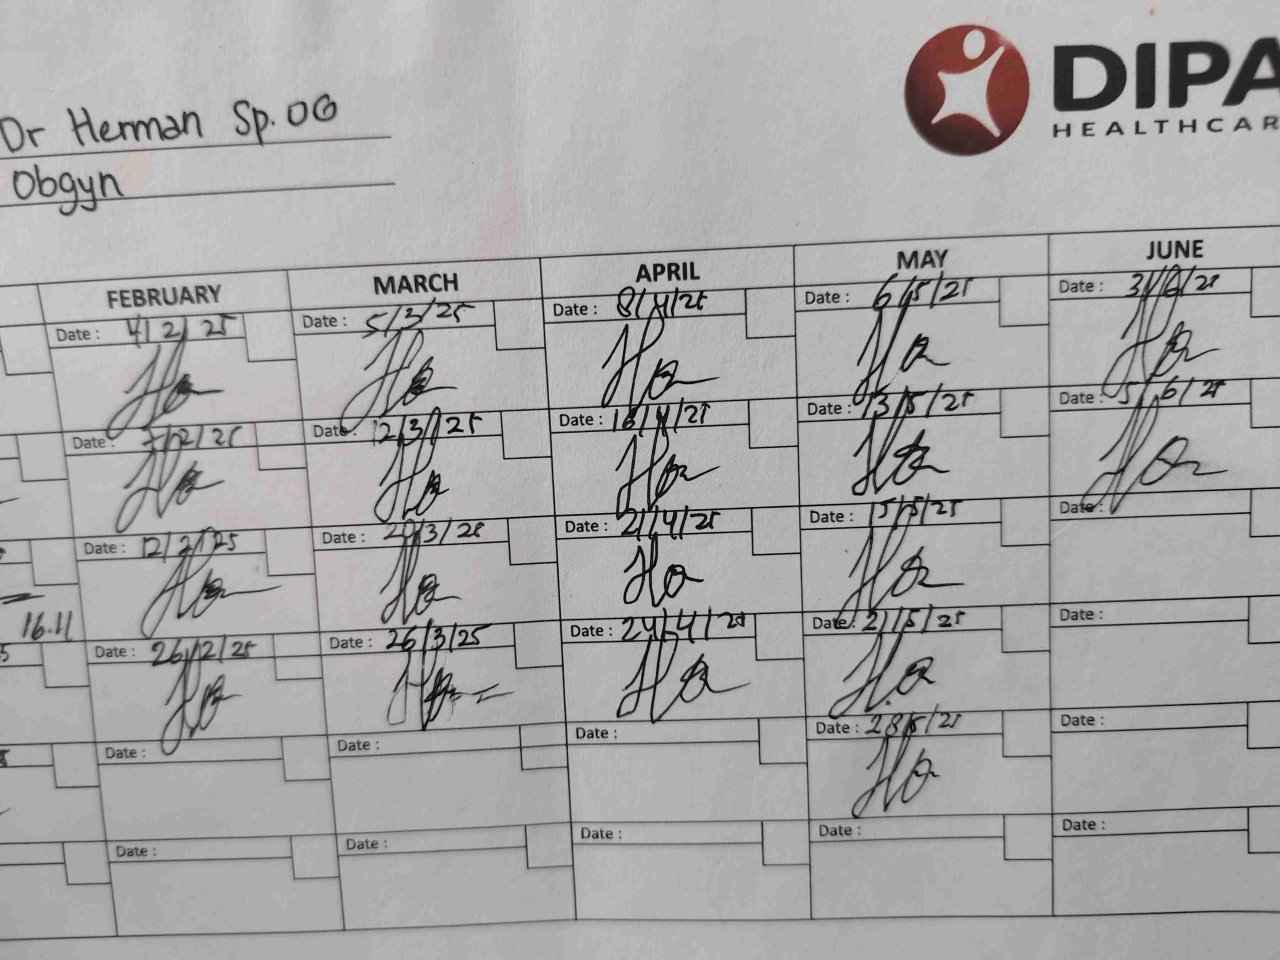 DIPA
HEALTHCAR
Dr Herman Sp. OG
Obgyn
FEBRUARY MARCH APRIL MAY JUNE
Date : 4/2/25 Date : 5/3/25 Date : 8/4/25 Date : 6/5/25 Date : 3/6/25
Date : 7/2/25 Date : 12/3/25 Date : 16/4/25 Date : 13/5/25 Date : 5/6/25
Date : 12/2/25 Date : /3/25 Date : 21/4/25 Date : 15/5/25 Date :
16.11
Date : 26/2/25 Date : 26/3/25 Date : 24/4/25 Date : 21/5/25 Date :
Date : Date : Date : Date : 28/5/25 Date :
Date : Date : Date : Date : Date :